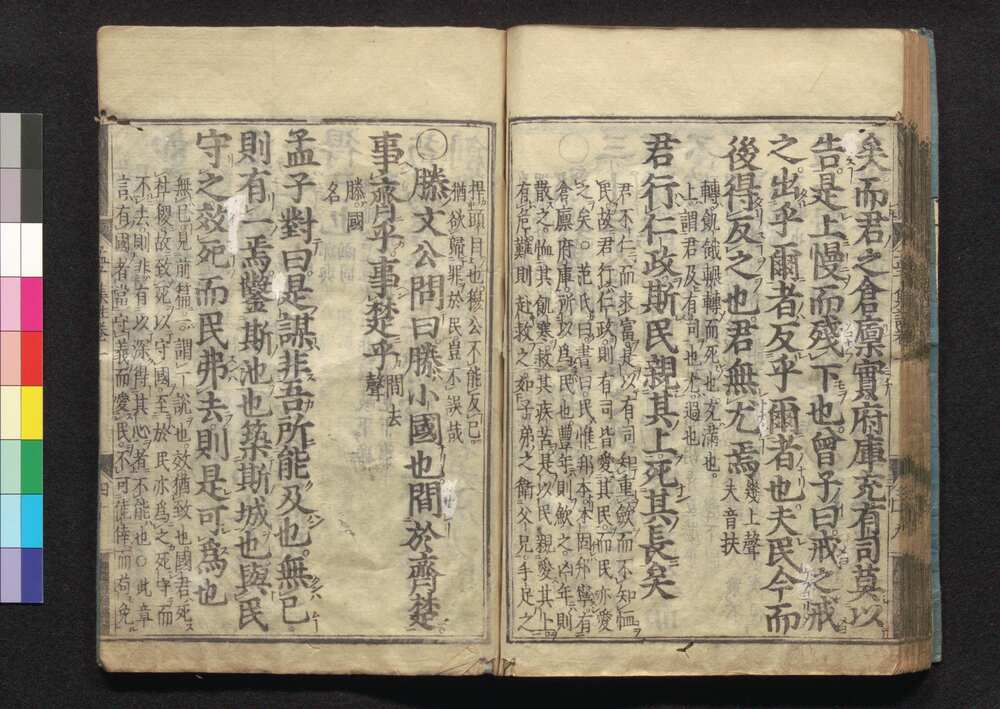 矣而君之倉廩實府庫充有司莫以
告是上慢而殘下也曾子曰戒之戒
之出乎爾者反乎爾者也夫民今而
後得反之也君無尤焉
幾上聲
夫音扶
轉飢餓輾轉而死也充滿也
上謂君及有司也尤過也
君行仁政斯民親其上死其長矣
君不仁而求富是以有司知重斂而不知恤
民故君行仁政則有司皆愛其民而民亦愛
之矣○范氏曰書曰民惟邦本本固邦寧有
倉廩府庫所以為民也豐年則斂之凶年則
散之恤其飢寒救其疾苦是以民親愛其上
有危難則赴救之如子弟之衛父兄手足之
捍頭目也穆公不能反己
猶欲歸罪於民豈不誤哉
○滕文公問曰滕小國也間於齊楚
事齊乎事楚乎
間去
聲
滕國
名
孟子對曰是謀非吾所能及也無已
則有一焉鑿斯池也築斯城也與民
守之效死而民弗去則是可為也
無已見前篇一謂一說也效猶致也國君死
社稷故致死以守國至於民亦為之死守而
不去則非有以深得其心者不能也○此章
言有國者當守義而愛民不可僥倖而苟免